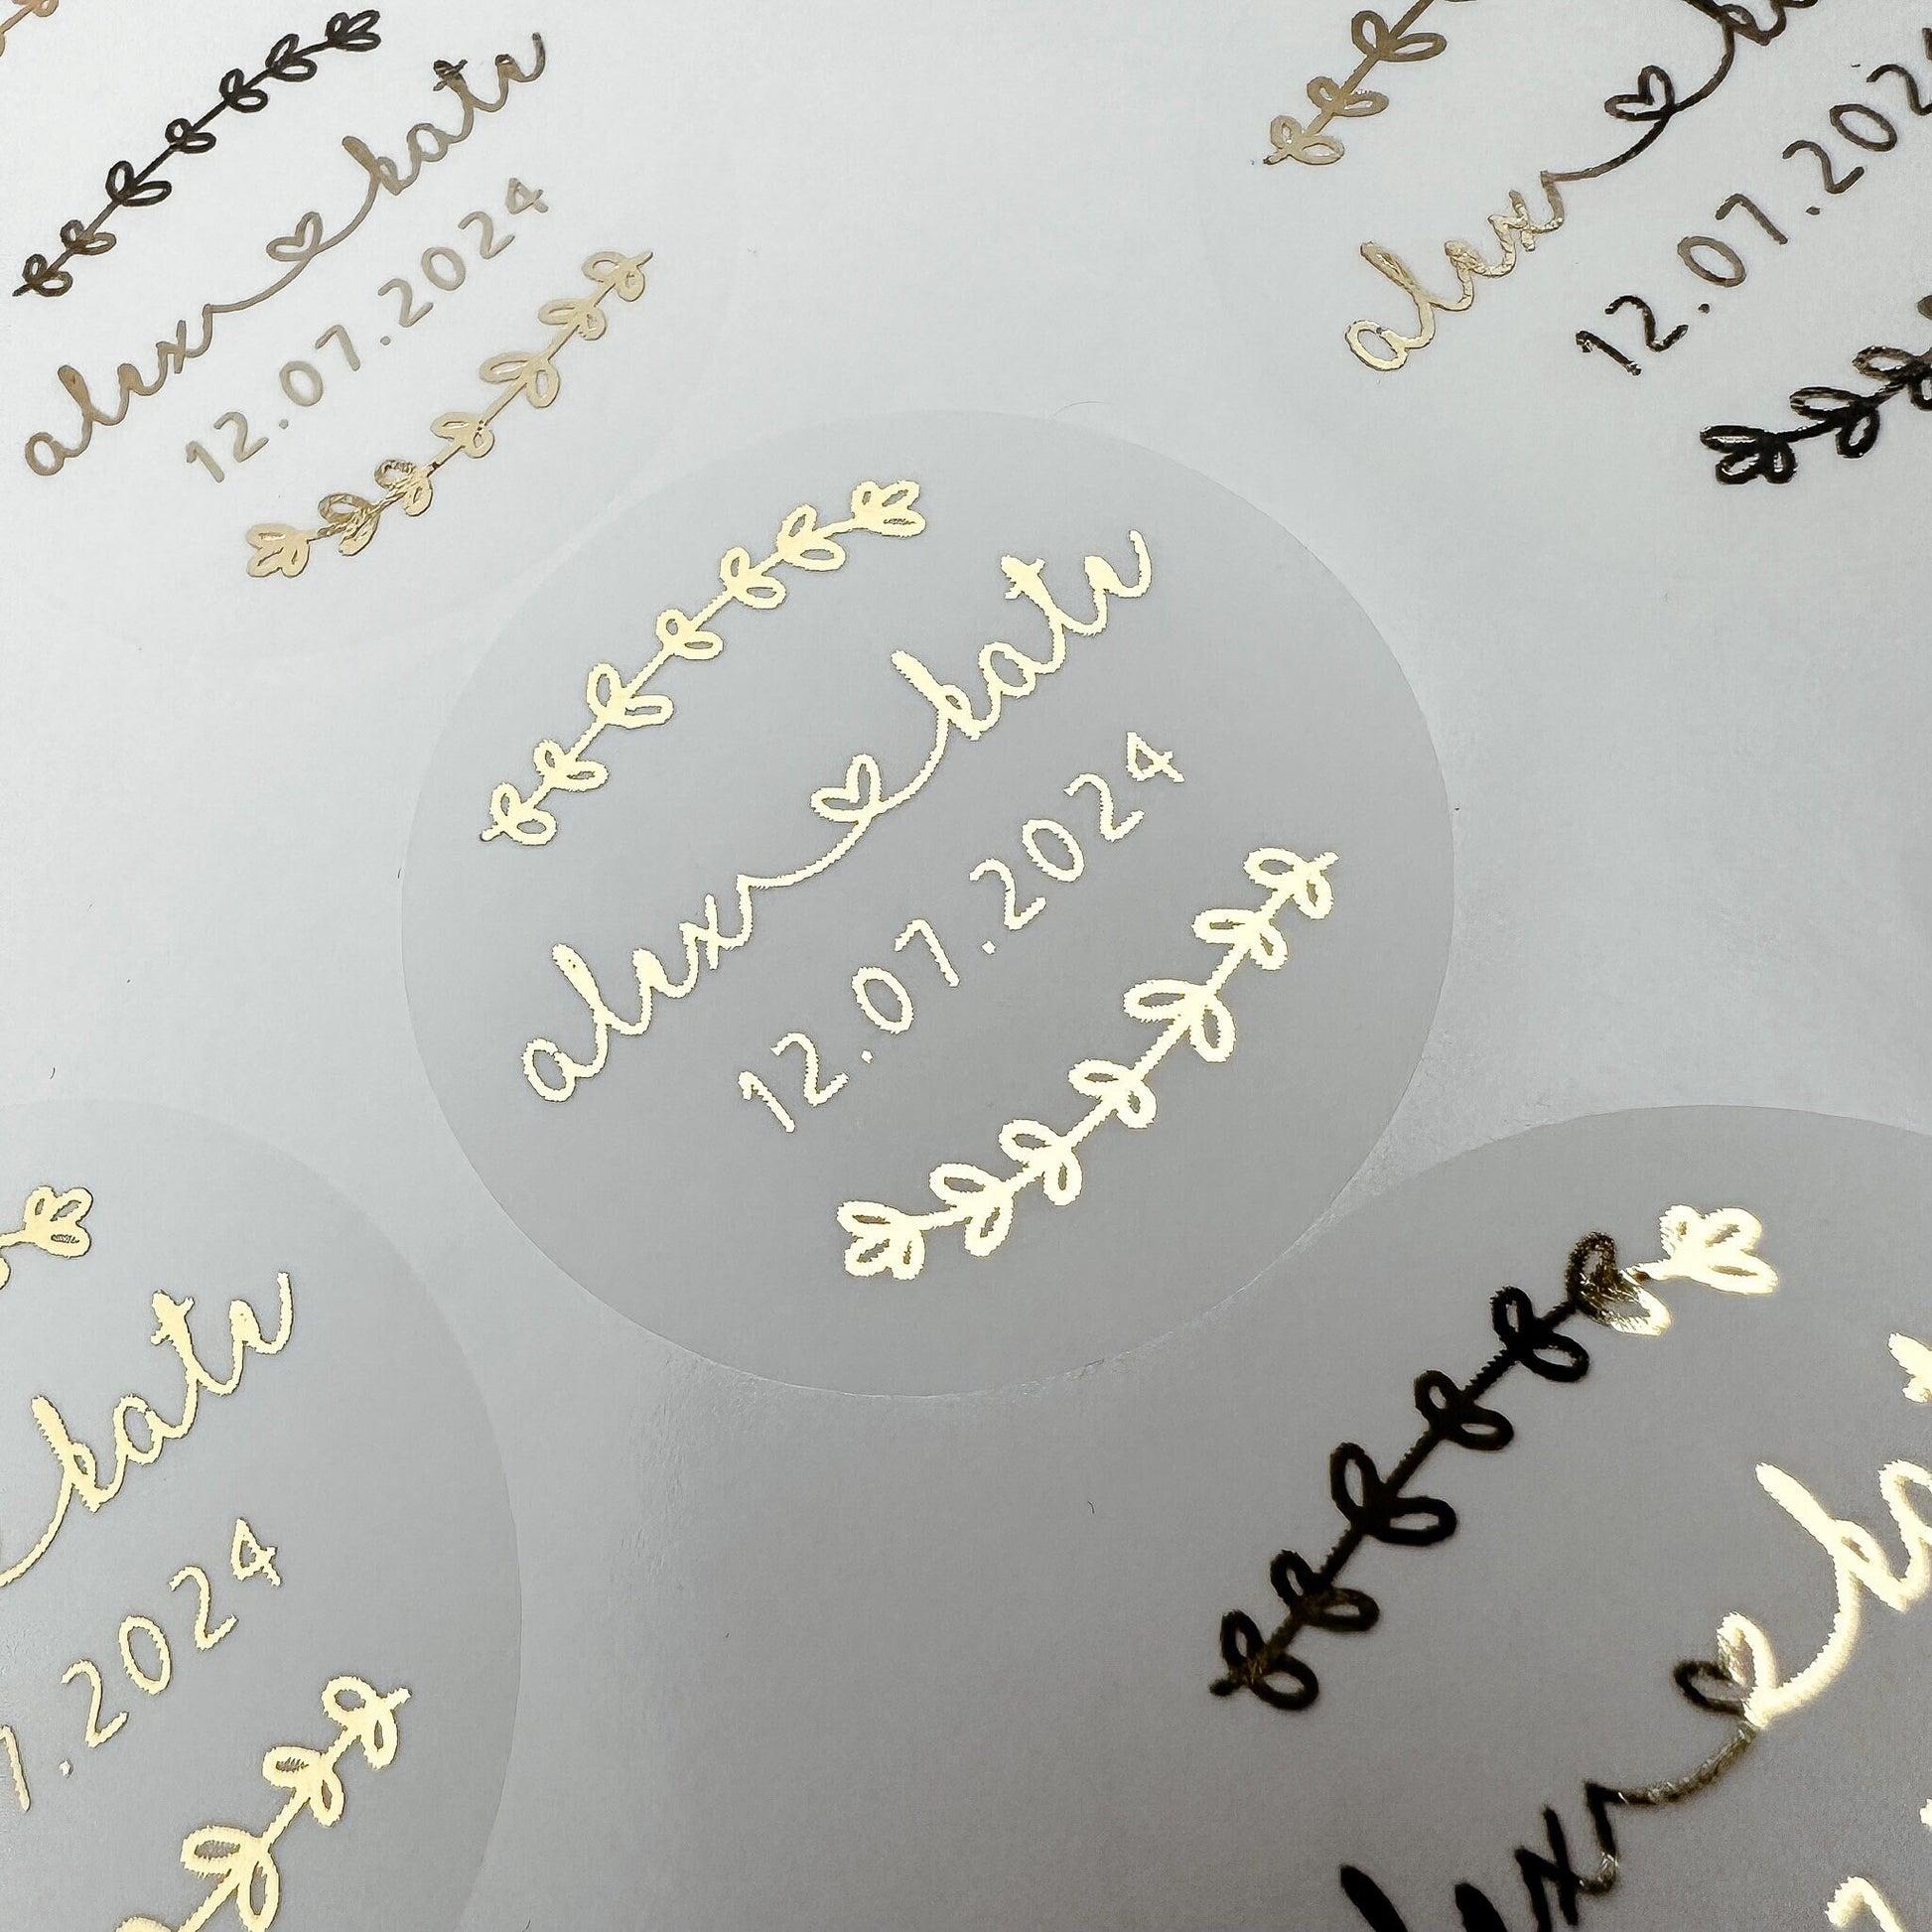 alex kate
12.07.2024
alex k
12.07.202
alex kate
12.07.2024
kate
7.2024
alex ka